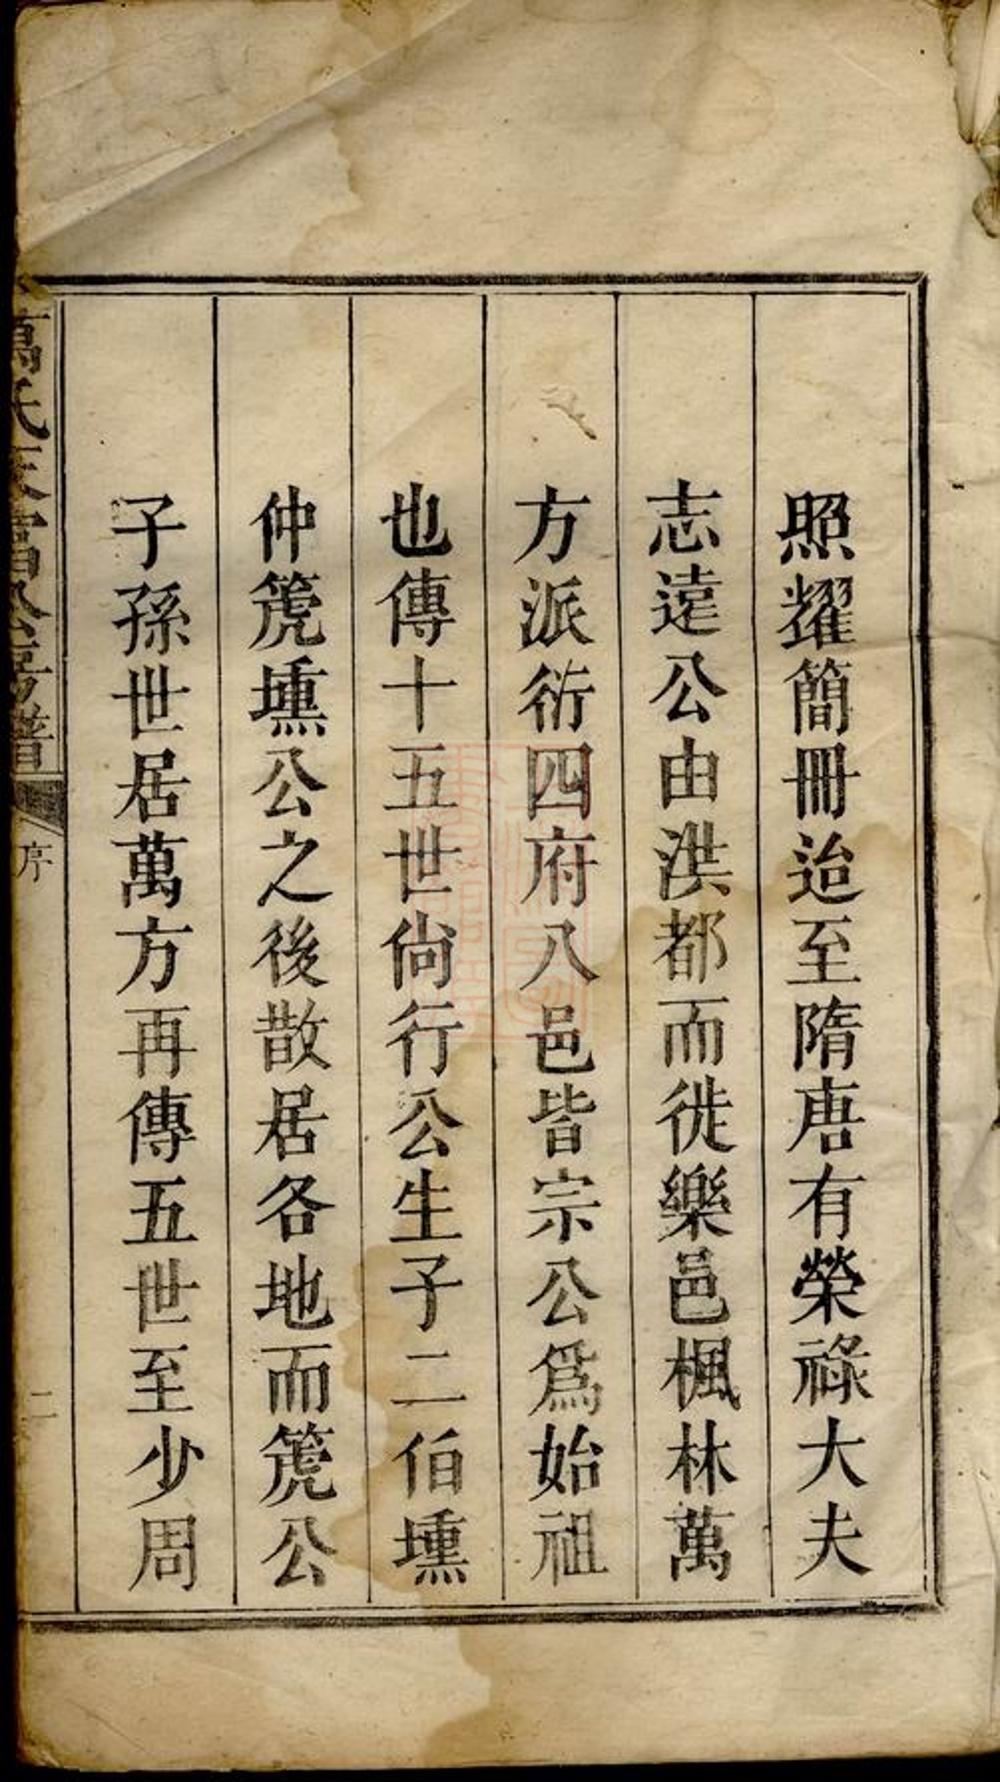 照耀簡冊迨至隋唐有榮祿大夫
志遠公由洪都而徙樂邑楓林萬
方派衍四府八邑皆宗公爲始祖
也傳十五世尙行公生子二伯壎
仲箎壎公之後散居各地而箎公
子孫世居萬方再傳五世至少周
序
二